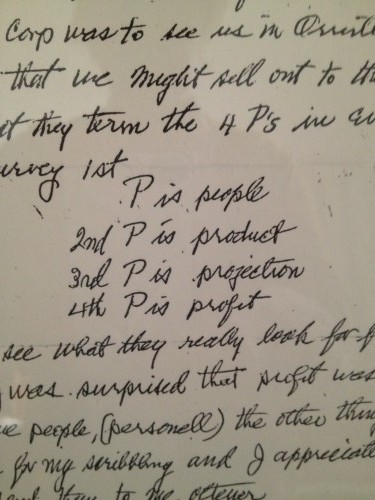 Corp was to see us in
that we might sell out to
they term the 4 P's in
1st
P is people
2nd P is product
3rd P is projection
4th P is profit
see what they really look for
was surprised that profit was
people, (personell) the other
for my scribbling and I appreciate
them to me oftener